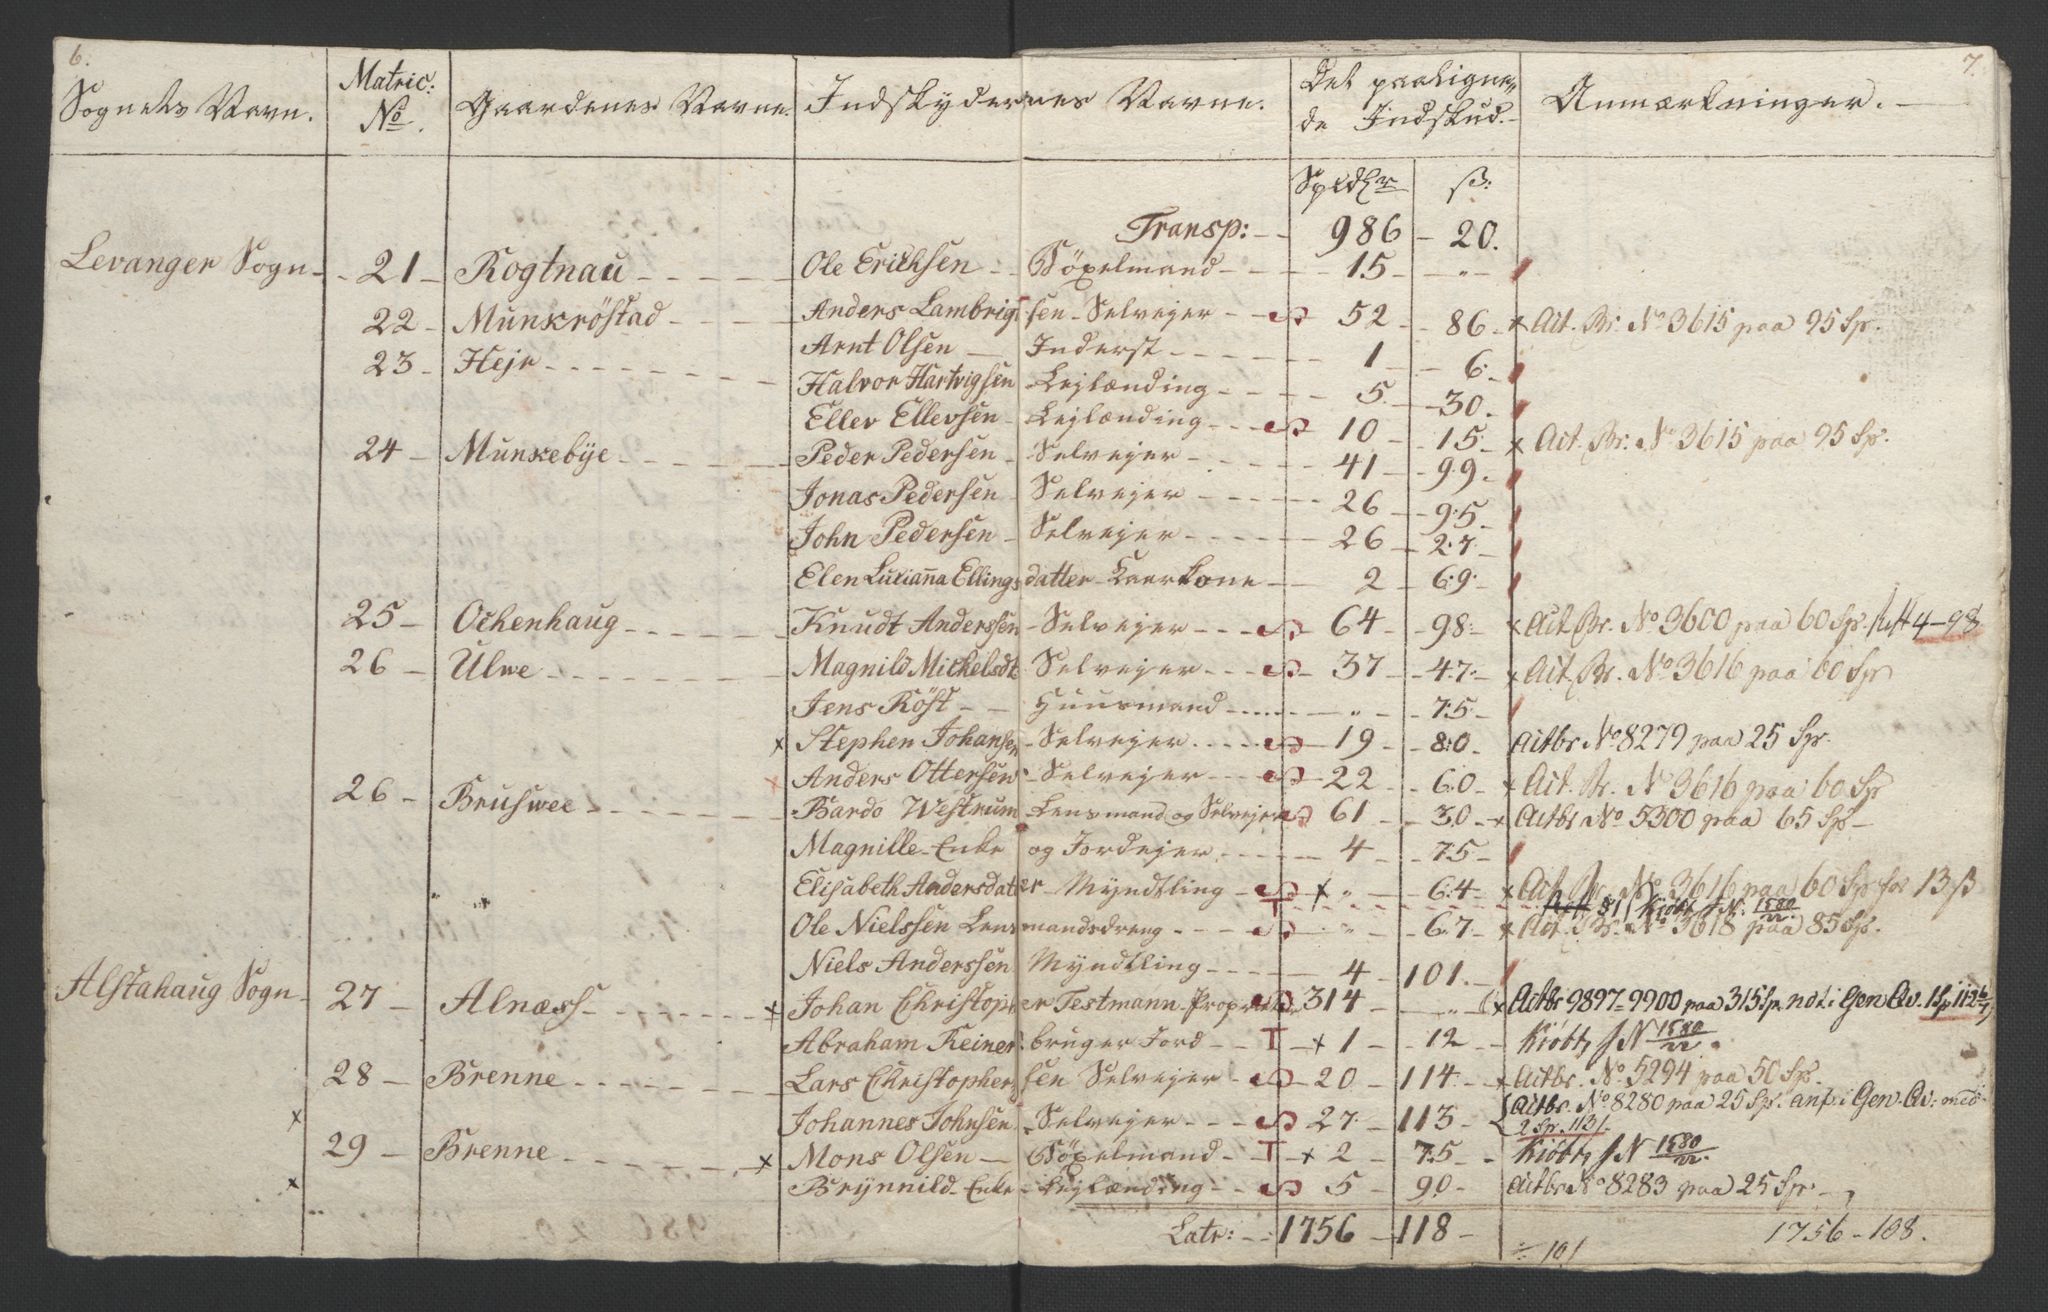 6.
7.
Sognets Navn. Matric: No. Gaardenes Navne. Indskydernes Navne. Det paaligne- Anmærkninger.
de Indskud.
Spedlr ß:
Transp: 986 - 20.
Levanger Sogn 21 Rogtnau Ole Erichsen - 15 - "
22 - Munkröstad Anders Lambrigtsen - Selvejer S 52 - 86 x Act. Br. No 3615 paa 95 Sp.
23 - Hejr Arnt Olsen - Inderst 1 - 6.
Halvor Hartvigsen - Lejlænding 5 - 30.
Eller Ellevsen - Lejlænding S 10 - 15. x Act. Br. No 3615 paa 95 Sp.
24 - Munkebÿe Peder Pedersen - Selvejer 41 - 99.
Jonas Pedersen - Selvejer 26 - 95
John Pedersen - Selvejer 26 - 27
Elen Lucianna Ellingsdatter - Kaarkone 2 - 69
25 - Ochenhaug Knudt Anderssen - Selvejer S 64 - 98 x Act. Br. No 3600 paa 60 Sp. 4-98
26 - Ulwe Magnild Michelsdt Selvejer S 37 - 47 x Act. Br. No 3616 paa 60 Sp
Jens Röst - Huusmand " - 75
x Stephen Johansen - Selvejer S 19 - 80 Actbr No 8279 paa 25 Sp.
x Anders Ottersen - Selvejer S 22 - 60 x Act. Br. No 3616 paa 60 Sp
26 - Bruswee Bardo Westrum Lensmand og Selvejer S 61 - 30 x Actbr No 5300 paa 65 Sp
Magnille - Enke og Jordejer 4 - 75
Elisabeth Andersdater - Myndtling S x " - 64 x Act. Br. No 3616 paa 60 Sp for 13 ß
T 51 Kiöbt f N. 1580/22.
Ole Nielssen Lensmandsdreng S " - 67 x Act. Br. No 3618 paa 85 Sp.
Niels Anderssen Myndtling 4 - 101.
Alstahaug Sogn 27 - Alnæss x Johan Christopher Testmann - S 314 - " x Actbr 9897-9900 paa 315 Sp ndt i Gen Qv. 1 Sp
Abraham Reiner bruger Jord T x 1 - 12 Kiöbt f N 1580/22.
28 - Brenne Lars Christophersen Selvejer S 20 - 114 x Actbr. No 5294 paa 50 Sp.
x Johannes Johnsen - Selvejer S 27 - 113 Actbr. No 8280 paa 25 Sp. anf: i Gen. Qv: med
2 Sp. 113 ß.
29 - Brenne x Mons Olsen - T x 2 - 75 Kiöbt f N 1580/22.
x Brÿnnild - Enke - Lejlænding S 5 - 90 Actbr No 8283 paa 25 Sp.
Latr: 1756 - 118 1756 - 108.
÷ 101